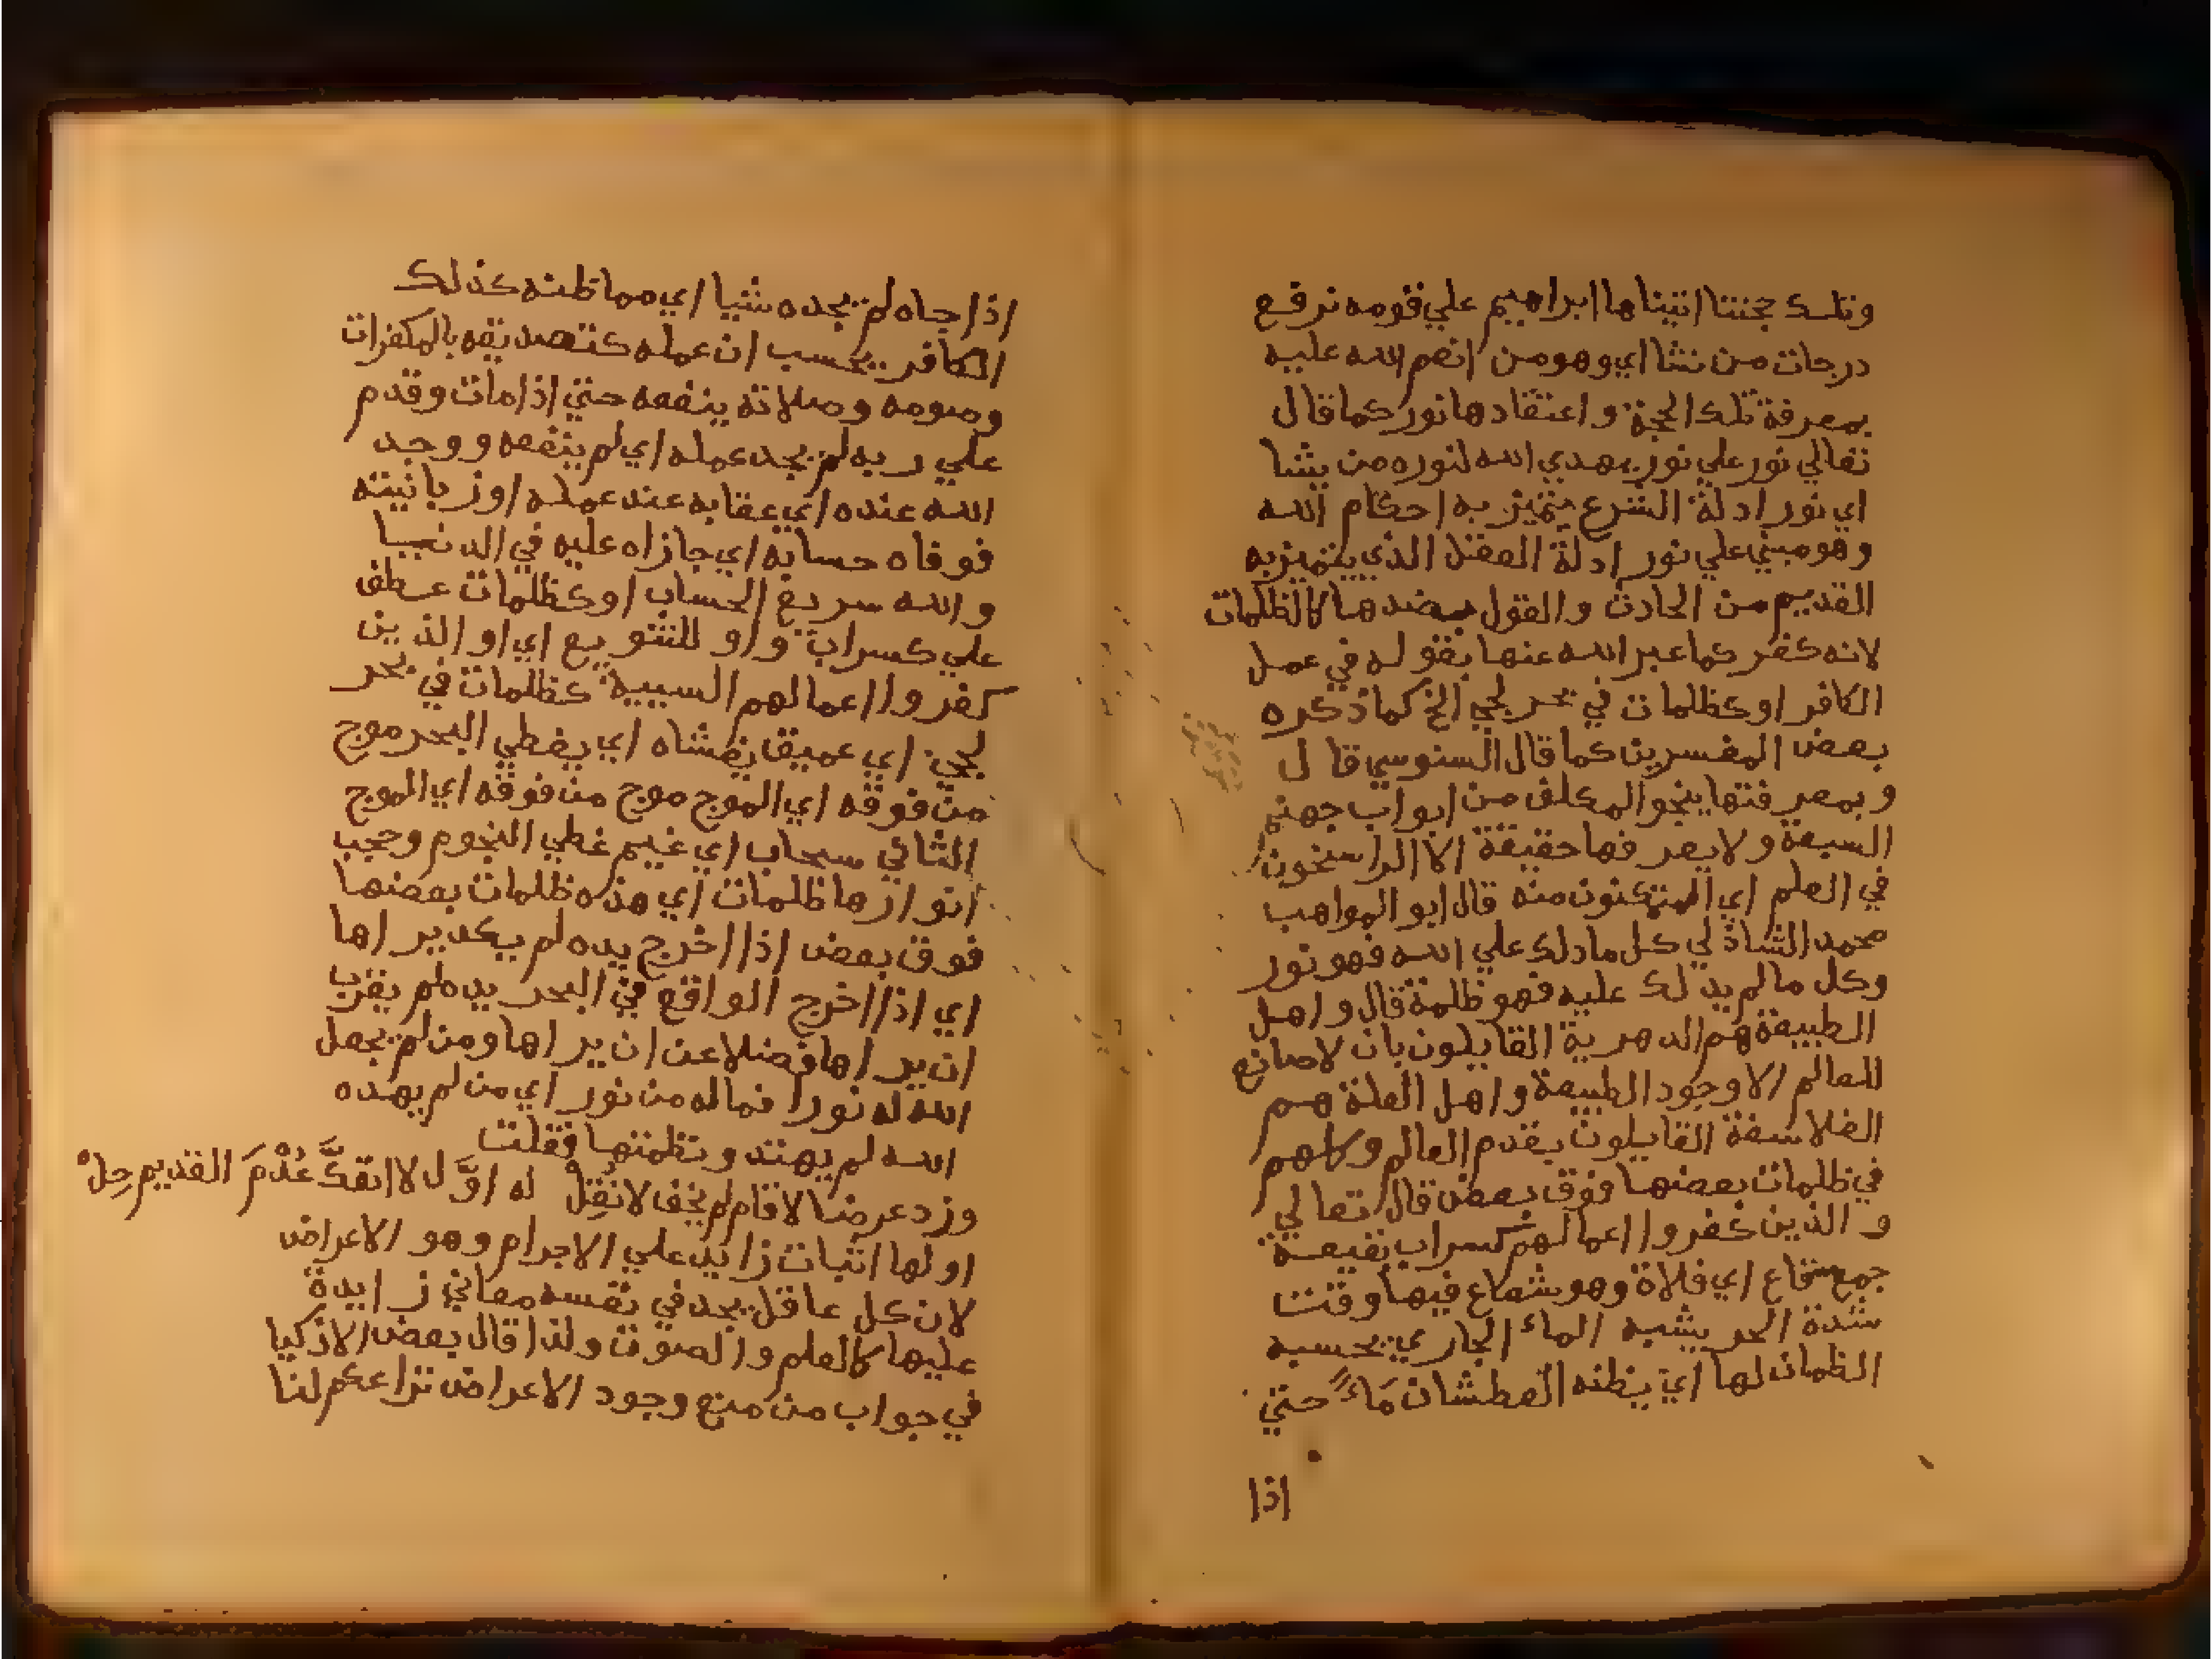 وتلك حجتنا اتيناها ابراهيم علي قومه نرفع
درجات من نشا اي وهو من انعم الله عليه
بمعرفة تلك الحجة واعتقادها نور كما قال
تعالي نور علي نور يهدي الله لنوره من يشا
اي نور ادلة الشرع يتميز به احكام الله
وهو مبني علي نور ادلة العقل الذي يتميز به
القديم من الحادث والقول بضدها كالظلمات
لانه كفر كما عبر الله عنها بقوله في عمل
الكافر او كظلمات في بحر لجي الخ كما ذكره
بعض المفسرين كما قال السنوسي قال
وبمعرفتها ينجو المكلف من ابواب جهنم
السبعة ولا يعرفها حقيقة الا الراسخون
في العلم اي المتمكنون منه قال ابو المواهب
محمد الشاذلي كل ما دلك علي الله فهو نور
وكل ما لم يدلك عليه فهو ظلمة قال واهل
الطبيعة هم الدهرية القايلون بان لا صانع
للعالم الا وجود الطبيعة واهل العلة هم
الفلاسفة القايلون بقدم العالم وكلهم
في ظلمات بعضها فوق بعض قال تعالي
والذين كفروا اعمالهم كسراب بقيعة
جمع قاع اي فلاة وهو شعاع فيها وقت
شدة الحر يشبه الماء الجاري يحسبه
الظمان لها اي يظنه العطشان مَاءً حتي
اذا
اذا جاه لم يجده شيا اي مما ظنه كذلك
الكافر يحسب ان عمله كتصديقه بالمكفرات
وصومه وصلاته ينفعه حتي اذا مات وقدم
علي ربه لم يجد عمله اي لم ينفعه ووجد
الله عنده اي عقابه عند عمله او زبانيته
فوفاه حسابه اي جازاه عليه في الدنيا
والله سريع الحساب او كظلمات عطف
علي كسراب واو للتنويع اي او الذين
كفروا اعمالهم السيية كظلمات في بحر
لجي اي عميق يغشاه اي يغطي البحر موج
من فوقه اي الموج موج من فوقه اي الموج
الثاني سحاب اي غيم غطي النجوم وحجب
انوارها ظلمات اي هذه ظلمات بعضها
فوق بعض اذا اخرج يده لم يكد يراها
اي اذا اخرج الواقع في البحر يده لم يقرب
ان يراها فضلا عن ان يراها ومن لم يجعل
الله له نورا فما له من نور اي من لم يهده
الله لم يهتد ونظمتها فقلت
وزد عرضا لا قام لم يخف لا نُقِلْ له اوَّل لا انفكَّ عُدْمَ القديم حِلْ
اولها اثبات زايد علي الاجرام وهو الاعراض
لان كل عاقل يجد في نفسه معاني زايدة
عليها كالعلم والصوت ولذا قال بعض الاذكيا
في جواب من منع وجود الاعراض نزاعكم لنا